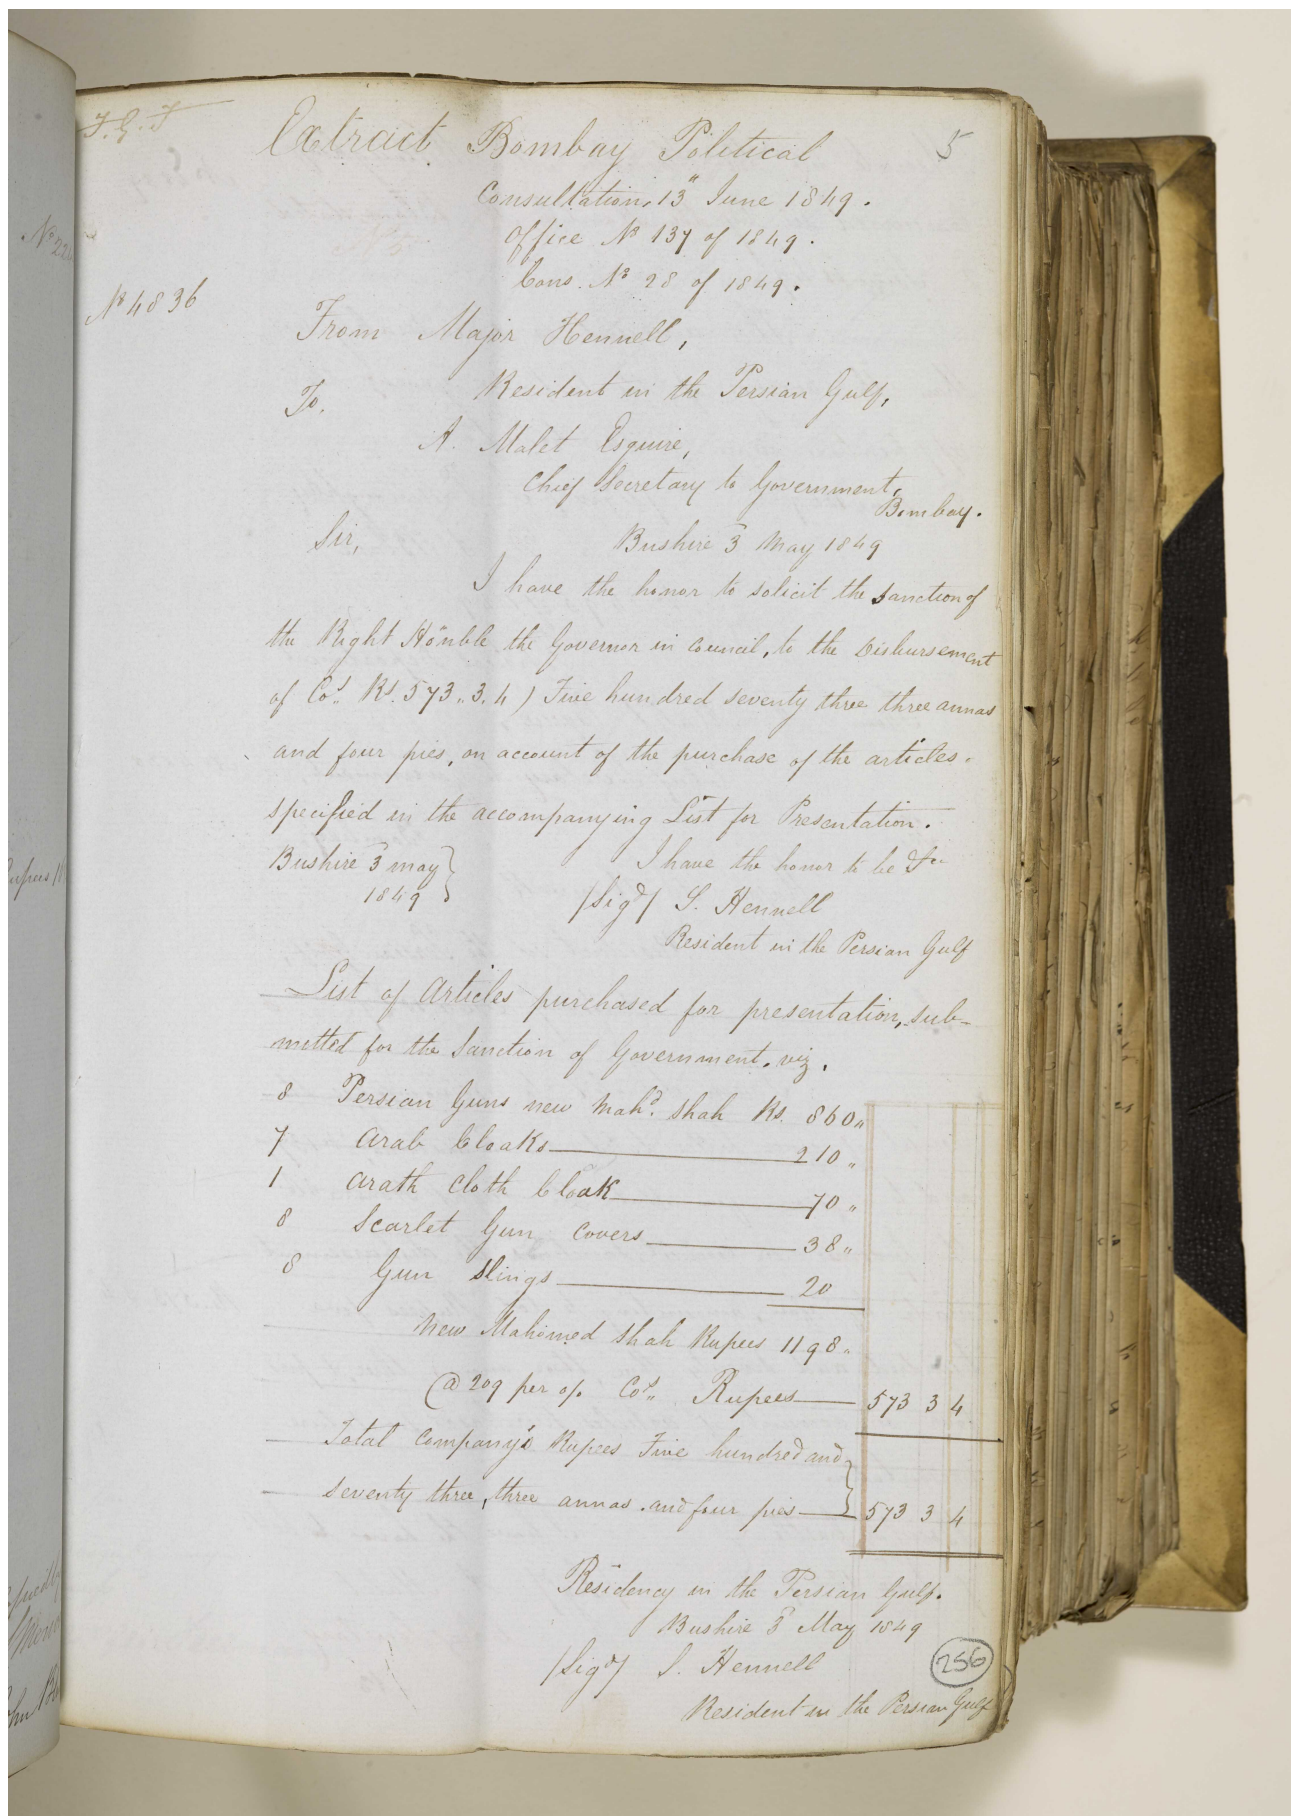 F. G. F
Extract Bombay Political 5
Consultation, 13" June 1849.
Office No 137 of 1849.
Cons. No 28 of 1849.
No 4836
From Major Hennell,
Resident in the Persian Gulf,
To.
A. Malet Esquire,
Chief Secretary to Government,
Bombay.
Sir, Bushire 3 May 1849
I have the honor to solicit the sanction of
the Right Hon'ble the Governor in Council, to the Disbursement
of Co's. Rs. 573.. 3. 4 ) Five hundred seventy three three annas
and four pies, on account of the purchase of the articles.
specified in the accompanying List for Presentation.
Bushire 3 may } I have the honor to be &c
1849
/Sigd/ S. Hennell
Resident in the Persian Gulf
List of Articles purchased for presentation, sub-
mitted for the Sanction of Government, viz.
8 Persian Guns new Mahd. Shah Rs. 860 "
7 Arab Cloaks 210 "
1 Arath Cloth Cloak 70 "
8 Scarlet Gun Covers 38 "
8 Gun Slings 20
New Mahomed Shah Rupees 1198 "
@ 209 per % Co's.. Rupees 573 3 4
Total Company's Rupees Five hundred and
seventy three, three annas and four pies } 573 3 4
Residency in the Persian Gulf.
Bushire 3 May 1849
/Sigd/ S. Hennell
256
Resident in the Persian Gulf